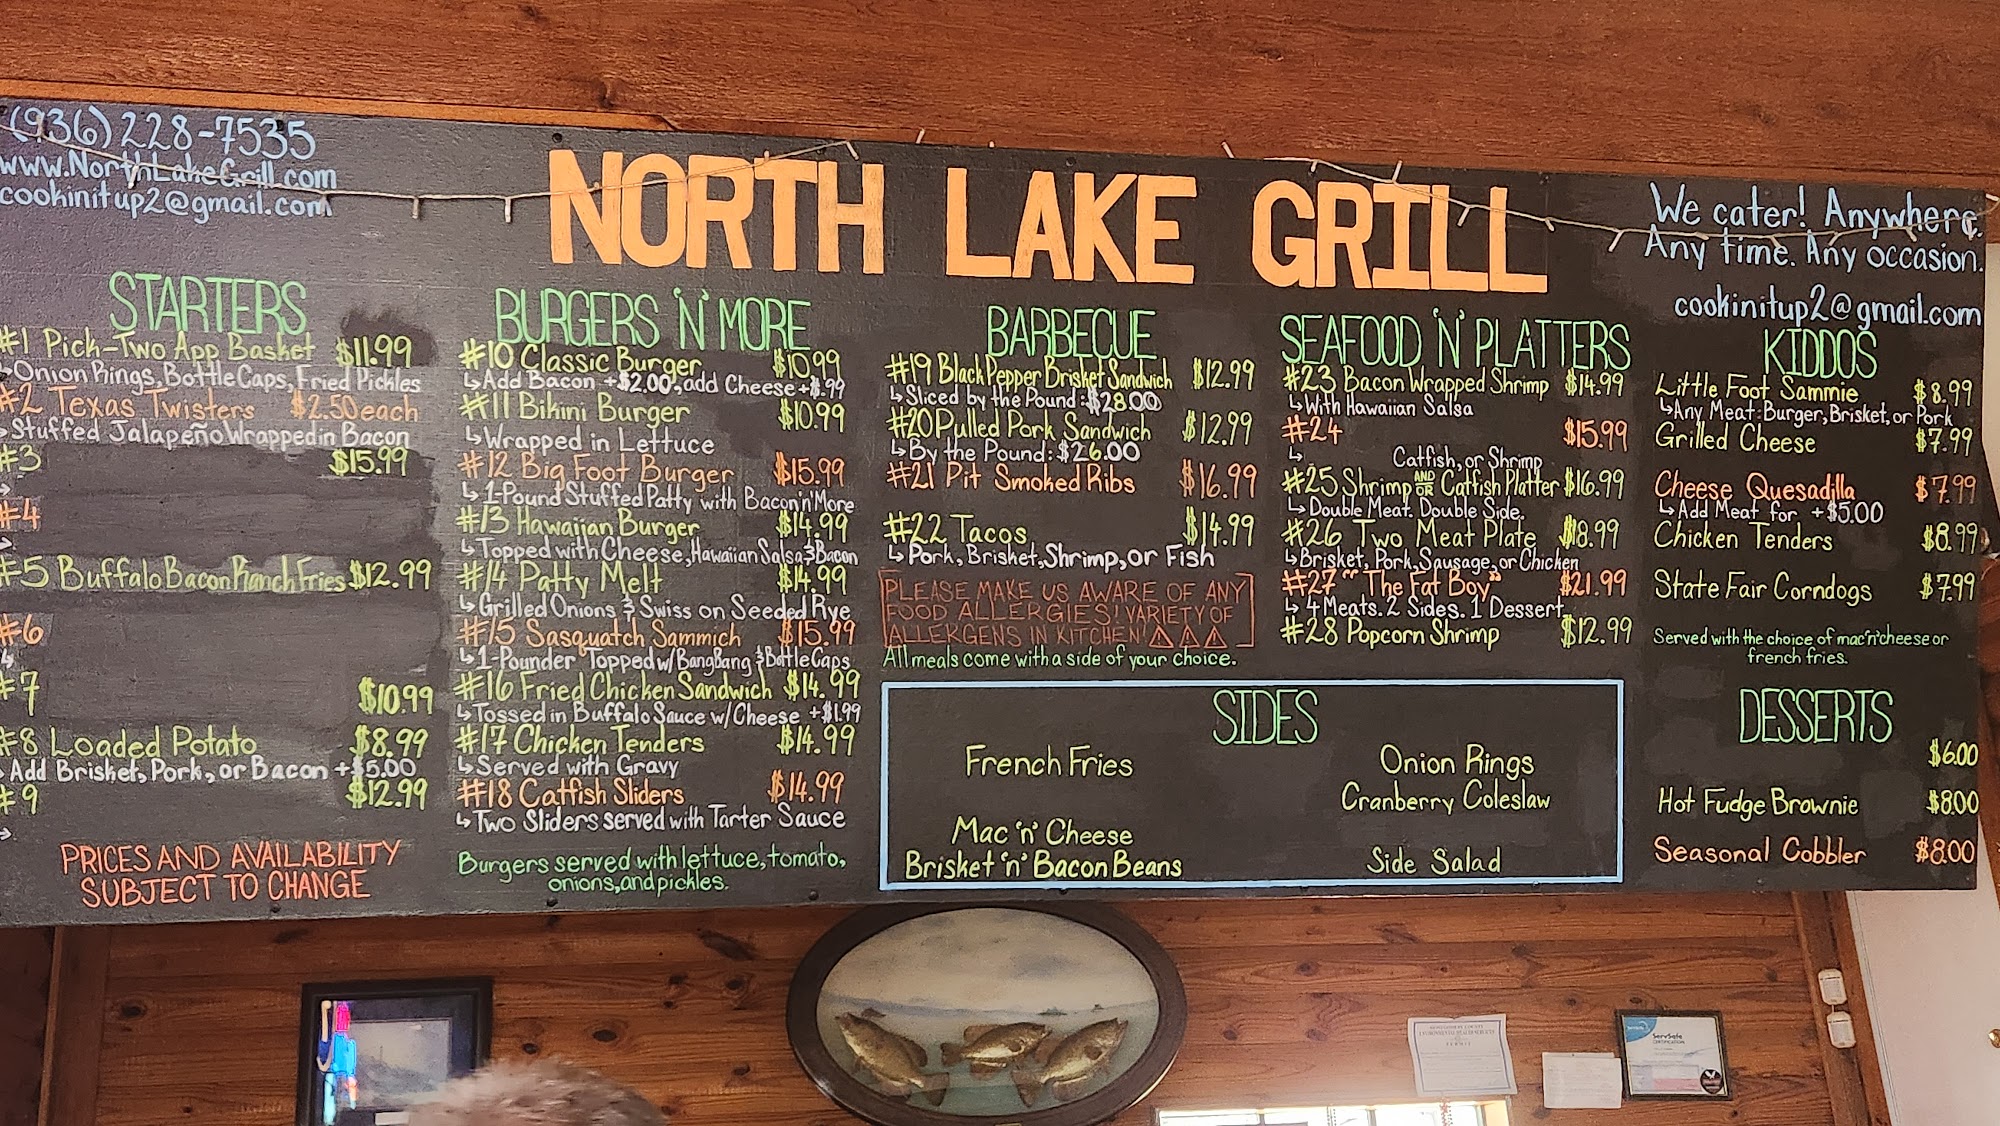 (936) 228-7535
www.NorthLakeGrill.com
cookinitup2@gmail.com
NORTH LAKE GRILL
We cater! Anywhere.
Any time. Any occasion.
cookinitup2@gmail.com
STARTERS
#1 Pick-Two App Basket $11.99
↳Onion Rings, Bottle Caps, Fried Pickles
#2 Texas Twisters $2.50 each
↳Stuffed Jalapeño Wrapped in Bacon
#3 $15.99
#4
#5 Buffalo Bacon Ranch Fries $12.99
#6
#7 $10.99
#8 Loaded Potato $8.99
↳Add Brisket, Pork, or Bacon +$5.00
#9 $12.99
PRICES AND AVAILABILITY
SUBJECT TO CHANGE
BURGERS 'N' MORE
#10 Classic Burger $10.99
↳Add Bacon +$2.00, add Cheese
#11 Bikini Burger $10.99
↳Wrapped in Lettuce
#12 Big Foot Burger $15.99
↳1-Pound Stuffed Patty with Bacon'n'More
#13 Hawaiian Burger $14.99
↳Topped with Cheese, Hawaiian Salsa & Bacon
#14 Patty Melt $14.99
↳Grilled Onions & Swiss on Seeded Rye
#15 Sasquatch Sammich $15.99
↳1-Pounder Topped w/BangBang & Bottle Caps
#16 Fried Chicken Sandwich $14.99
↳Tossed in Buffalo Sauce w/Cheese +$1.99
#17 Chicken Tenders $14.99
↳Served with Gravy
#18 Catfish Sliders $14.99
↳Two Sliders served with Tarter Sauce
Burgers served with lettuce, tomato,
onions, and pickles.
BARBECUE
#19 Black Pepper Brisket Sandwich $12.99
↳Sliced by the Pound: $28.00
#20 Pulled Pork Sandwich $12.99
↳By the Pound: $26.00
#21 Pit Smoked Ribs $16.99
#22 Tacos $14.99
↳Pork, Brisket, Shrimp, or Fish
PLEASE MAKE US AWARE OF ANY
FOOD ALLERGIES! VARIETY OF
ALLERGENS IN KITCHEN!
All meals come with a side of your choice.
SEAFOOD 'N' PLATTERS
#23 Bacon Wrapped Shrimp $14.99
↳With Hawaiian Salsa
#24 $15.99
↳ Catfish, or Shrimp
#25 Shrimp AND OR Catfish Platter $16.99
↳Double Meat. Double Side.
#26 Two Meat Plate $18.99
↳Brisket, Pork, Sausage, or Chicken
#27 "The Fat Boy" $21.99
↳4 Meats. 2 Sides. 1 Dessert
#28 Popcorn Shrimp $12.99
KIDDOS
Little Foot Sammie $8.99
↳Any Meat: Burger, Brisket, or Pork
Grilled Cheese $7.99
Cheese Quesadilla $7.99
↳Add Meat for +$5.00
Chicken Tenders $8.99
State Fair Corndogs $7.99
Served with the choice of mac'n'cheese or
french fries.
SIDES
French Fries
Mac 'n' Cheese
Brisket 'n' Bacon Beans
Onion Rings
Cranberry Coleslaw
Side Salad
DESSERTS
$6.00
Hot Fudge Brownie $8.00
Seasonal Cobbler $8.00
ServSafe
CERTIFICATION